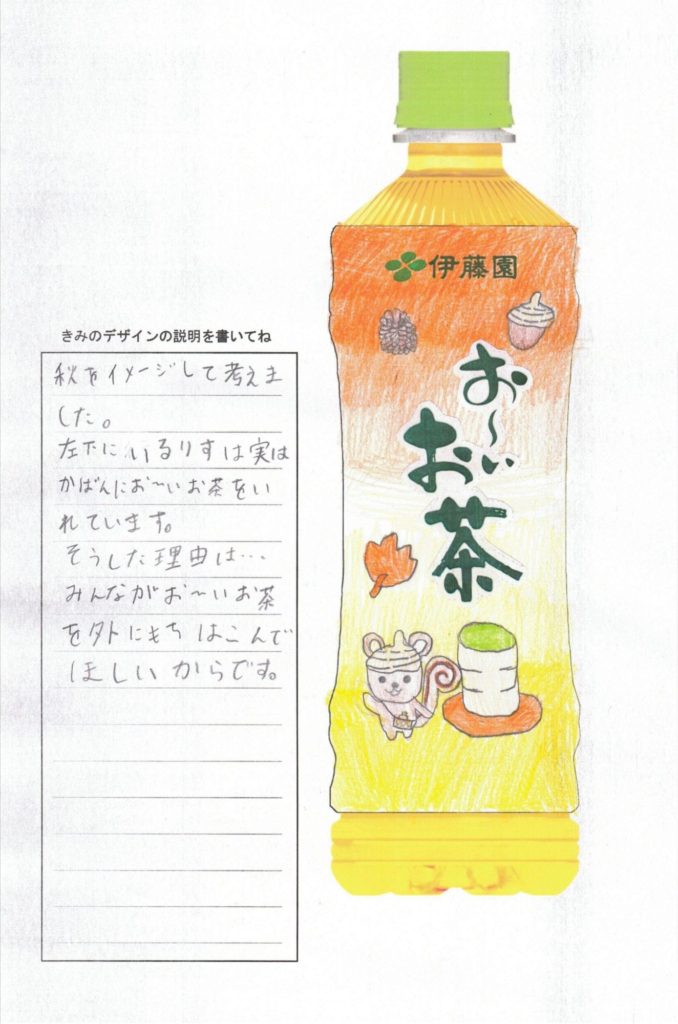 伊藤園
お～い
お茶
きみのデザインの説明を書いてね
秋をイメージして考えま
した。
左下にいるりすは実は
かばんにお〜いお茶をい
れています。
そうした理由は…
みんながお〜いお茶
を外にもちはこんで
ほしいからです。